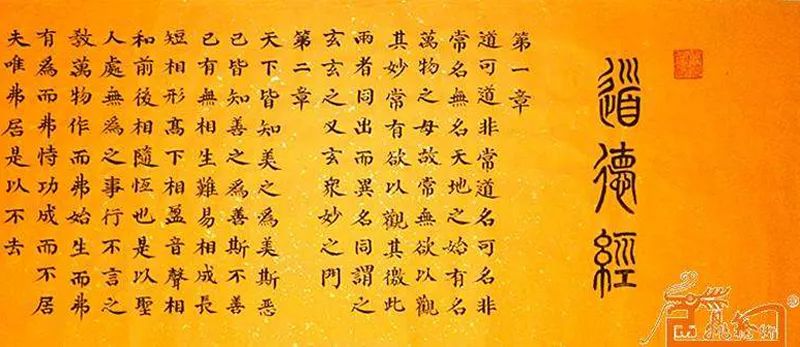 道德經
第一章
道可道非常道名可名非
常名無名天地之始有名
萬物之母故常無欲以觀
其妙常有欲以觀其徼此
兩者同出而異名同謂之
玄玄之又玄衆妙之門
第二章
天下皆知美之為美斯惡
已皆知善之為善斯不善
已有無相生難易相成長
短相形髙下相盈音聲相
和前後相隨恆也是以聖
人處無為之事行不言之
教萬物作而弗始生而弗
有為而弗恃功成而不居
夫唯弗居是以不去